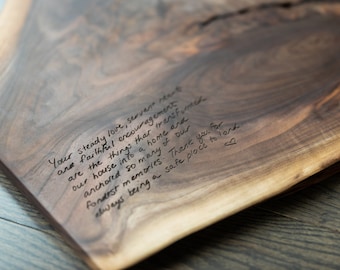 Your steady love, servant heart
and faithful encouragement
are the things that transformed
our house into a home and
anchored so many of our
fondest memories. Thank you for
always being a safe place to land.